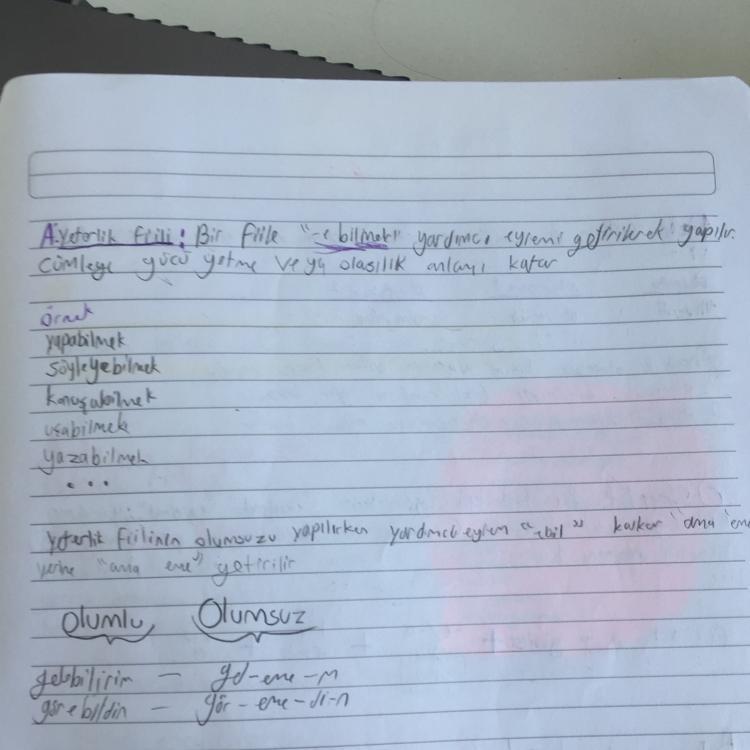 A.Yeterlik fiili: Bir fiile "-e bilmek" yardımcı eylemi getirilerek yapılır.
Cümleye gücü yetme veya olasılık anlamı katar
Örnek
yapabilmek
söyleyebilmek
konuşabilmek
uçabilmek
yazabilmek
...
Yeterlik fiilinin olumsuzu yapılırken yardımcı eylem "ebil" kalkar "ama eme
yerine "ama eme" getirilir
Olumlu Olumsuz
gelebilirim — gel-eme-m
görebildin — gör-eme-di-n